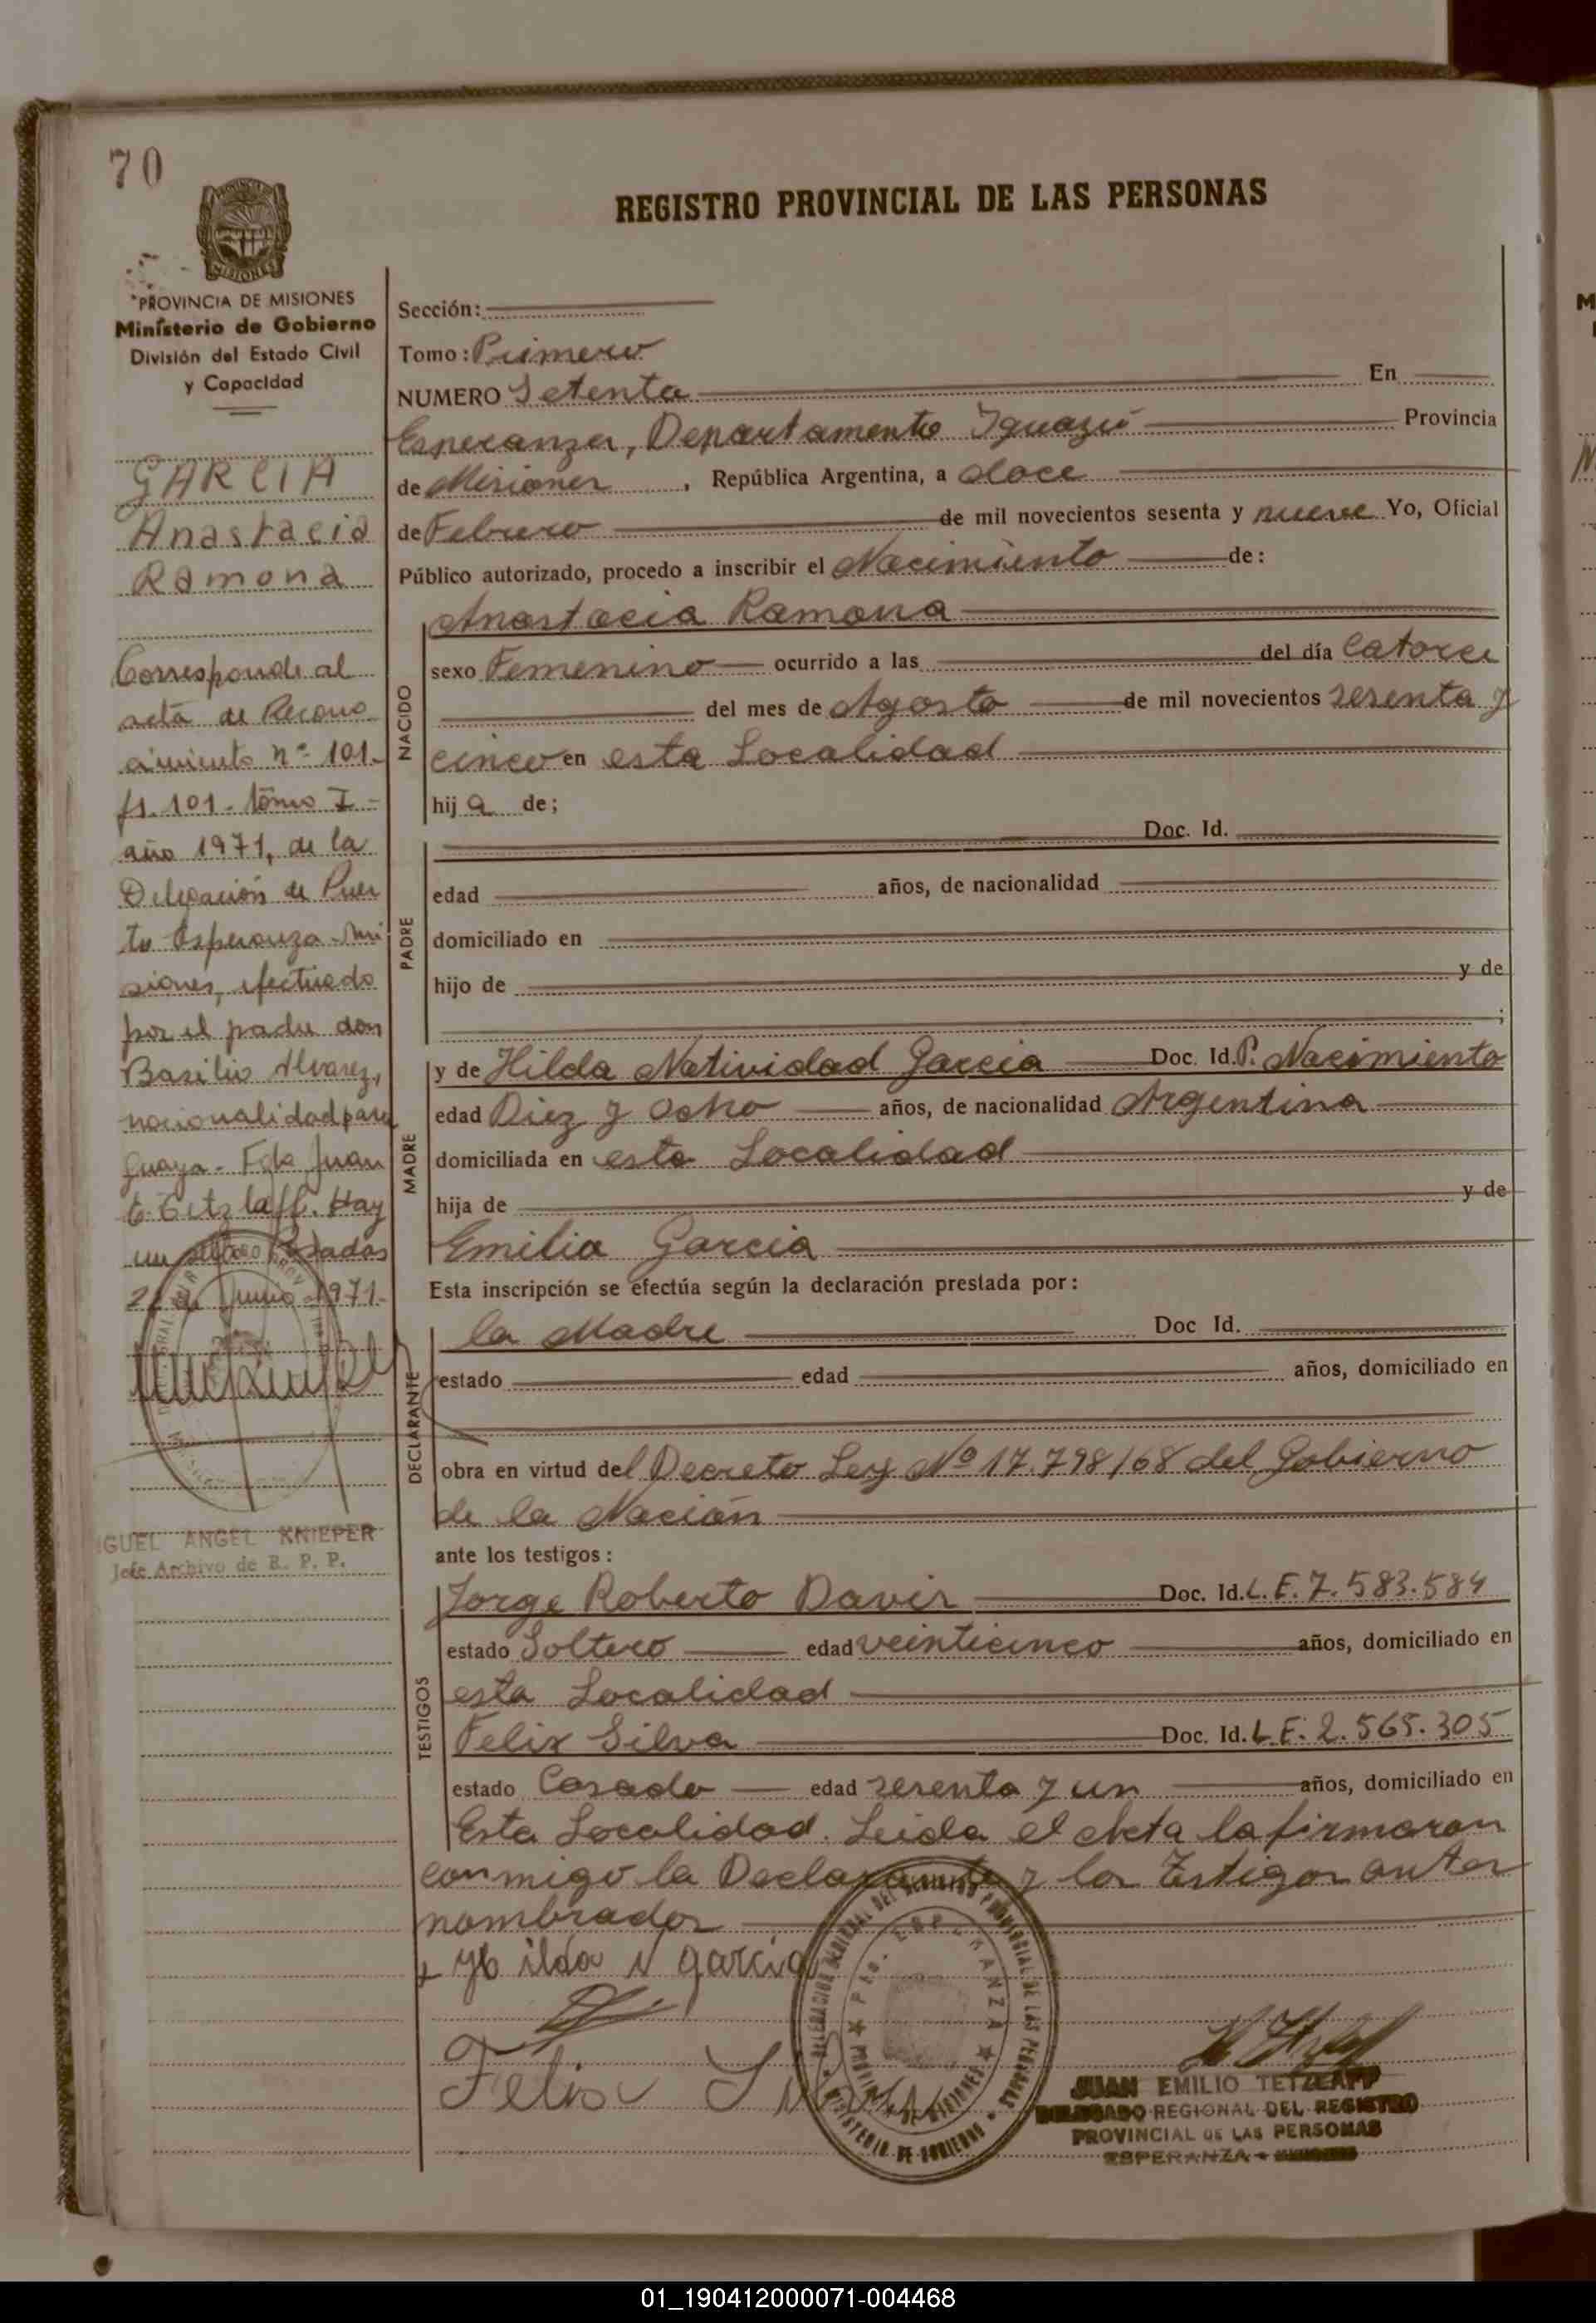 70
PROVINCIA DE MISIONES
Ministerio de Gobierno
División del Estado Civil
y Capacidad
GARCIA
Anastacia
Ramona
Corresponde al
acta de Recono
cimiento nº 101.
fs. 101. tomo I -
año 1971, de la
Delegación de Puer
to Esperanza - Mi
siones, efectuado
por el padre don
Basilio Alvarez,
nacionalidad para
guaya. Fdo Juan
E. Tetzlaff. Hay
un sello Posadas
de Junio 1971.
IGUEL ANGEL KNIEPER
Jefe Archivo de R. P. P.
REGISTRO PROVINCIAL DE LAS PERSONAS
Sección:
Tomo: Primero
NUMERO Setenta En
Esperanza, Departamento Iguazú Provincia
de Misiones, República Argentina, a doce
de Febrero de mil novecientos sesenta y nueve Yo, Oficial
Público autorizado, procedo a inscribir el Nacimiento de:
Anastacia Ramona
NACIDO
sexo Femenino ocurrido a las del día Catorce
del mes de Agosto de mil novecientos sesenta y
cinco en esta Localidad
hij a de;
PADRE
Doc. Id.
edad años, de nacionalidad
domiciliado en
hijo de y de
;
MADRE
y de Hilda Natividad Garcia Doc. Id. P. Nacimiento
edad Diez y Ocho años, de nacionalidad Argentina
domiciliada en esta Localidad
hija de y de
Emilia Garcia
Esta inscripción se efectúa según la declaración prestada por:
DECLARANTE
la Madre Doc Id.
estado edad años, domiciliado en
obra en virtud del Decreto Ley Nº 17.798/68 del Gobierno
de la Nación
ante los testigos:
TESTIGOS
Jorge Roberto Davis Doc. Id. L.E. 7.583.584
estado Soltero edad veinticinco años, domiciliado en
esta Localidad
Felix Silva Doc. Id. L.E. 2.565.305
estado Casado edad sesenta y un años, domiciliado en
Esta Localidad. Leida el Acta la firmaron
conmigo la Declarante y los Testigos antes
nombrados
x Hilda N garcia
Felix Silva
DELEGACION GENERAL DEL REGISTRO PROVINCIAL DE LAS PERSONAS
MINISTERIO DE GOBIERNO
Pto. ESPERANZA
PROVINCIA DE MISIONES
JUAN EMILIO TETZLAFF
DELEGADO REGIONAL DEL REGISTRO
PROVINCIAL DE LAS PERSONAS
ESPERANZA - MISIONES
01_190412000071-004468